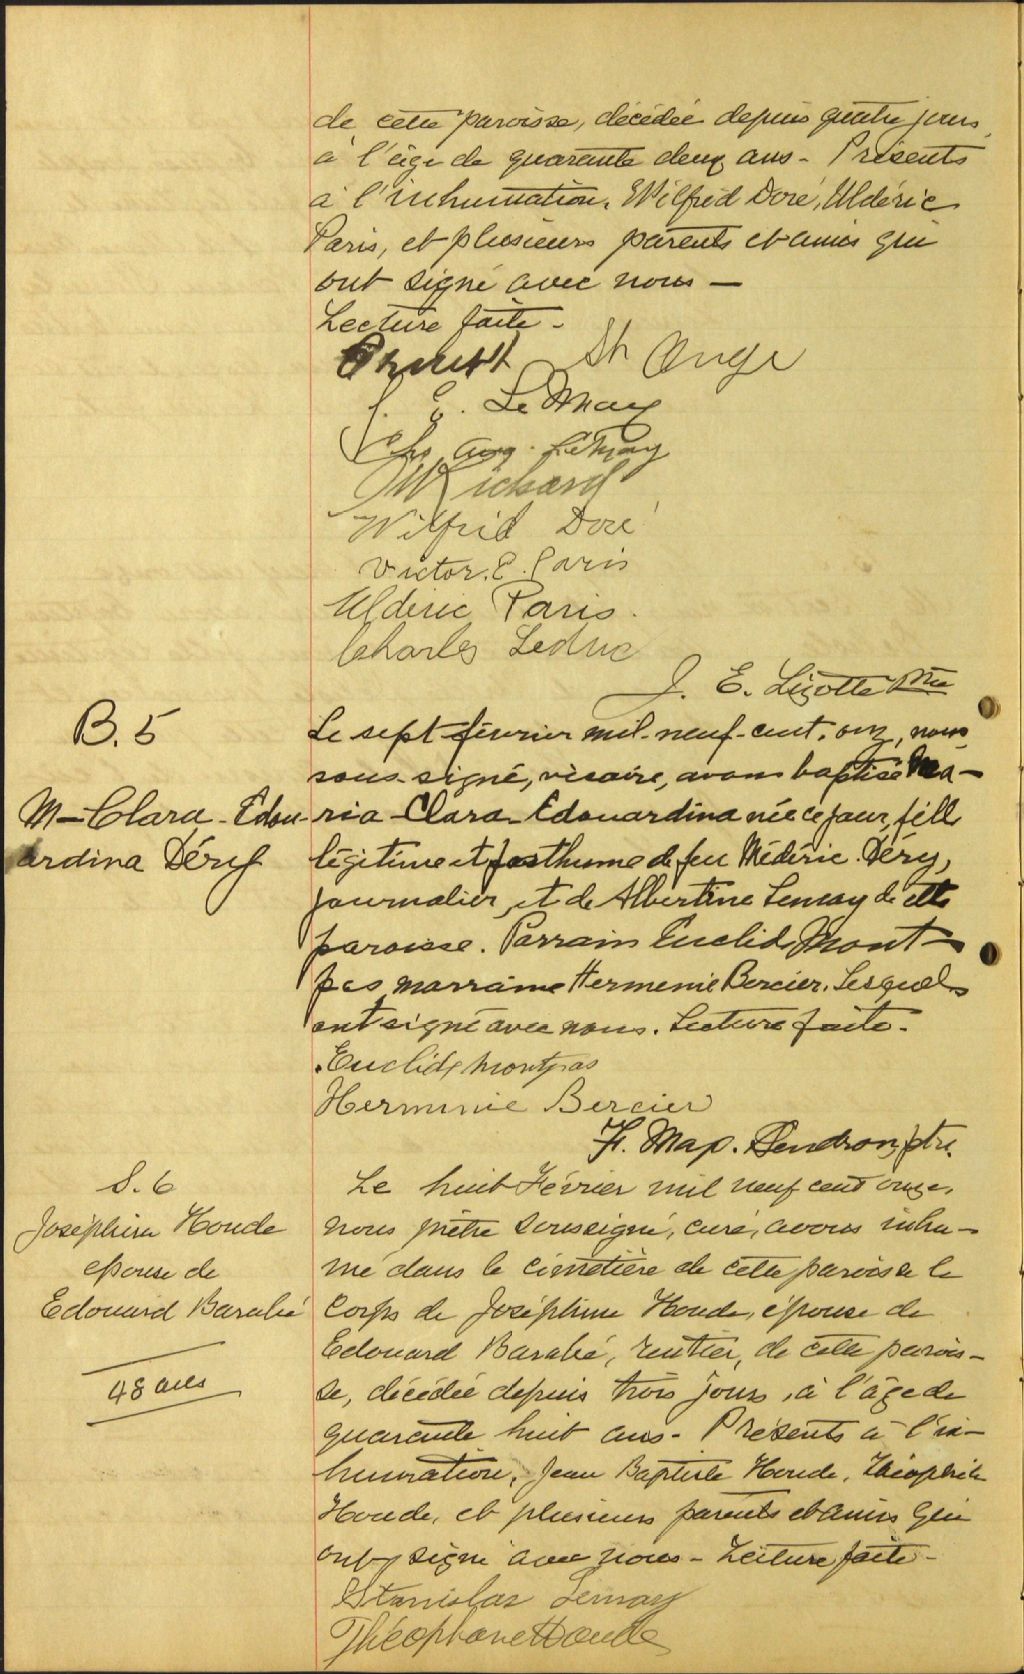 de cette paroisse, décédée depuis quatre jours,
à l'âge de quarante deux ans - Présents
à l'inhumation, Wilfrid Doré, Uldéric
Paris, et plusieurs parents et amis qui
ont signé avec nous -
Lecture faite -
St Onge
J. E. LeMay
Chs Aug. LeMay
Richard
Wilfrid Doré
Victor. E. Paris
Uldéric Paris.
Charles Leduc
J. E. Lizotte Ptre
B. 5
M-Clara-Edou-
ardina Déry
Le sept février mil-neuf-cent-onz, nous
sous-signé, vicaire, avons baptisé Ma-
ria-Clara-Edouardina née ce jour, fille
légitime et posthume de feu Médéric Déry,
journalier, et de Albertine Lemay de cette
paroisse. Parrain Euclide Mont-
pas, marraine Hermenie Bercier. Lesquels
ont signé avec nous. Lecture faite.
Euclide Montpas
Herminie Bercier
F. Map. Gendron, ptre.
S. 6
Joséphine Houde
épouse de
Edouard Barabé
48 ans
Le huit Février mil neuf cent onze,
nous prêtre soussigné, curé, avons inhu-
mé dans le cimetière de cette paroisse le
corps de Joséphine Houde, épouse de
Edouard Barabé, rentier, de cette parois-
se, décédée depuis trois jours, à l'âge de
quarante huit ans - Présents à l'in-
humation, Jean Baptiste Houde, Théophile
Houde, et plusieurs parents et amis qui
ont signé avec nous - Lecture faite -
Stanislas Lemay
Théophane Houde